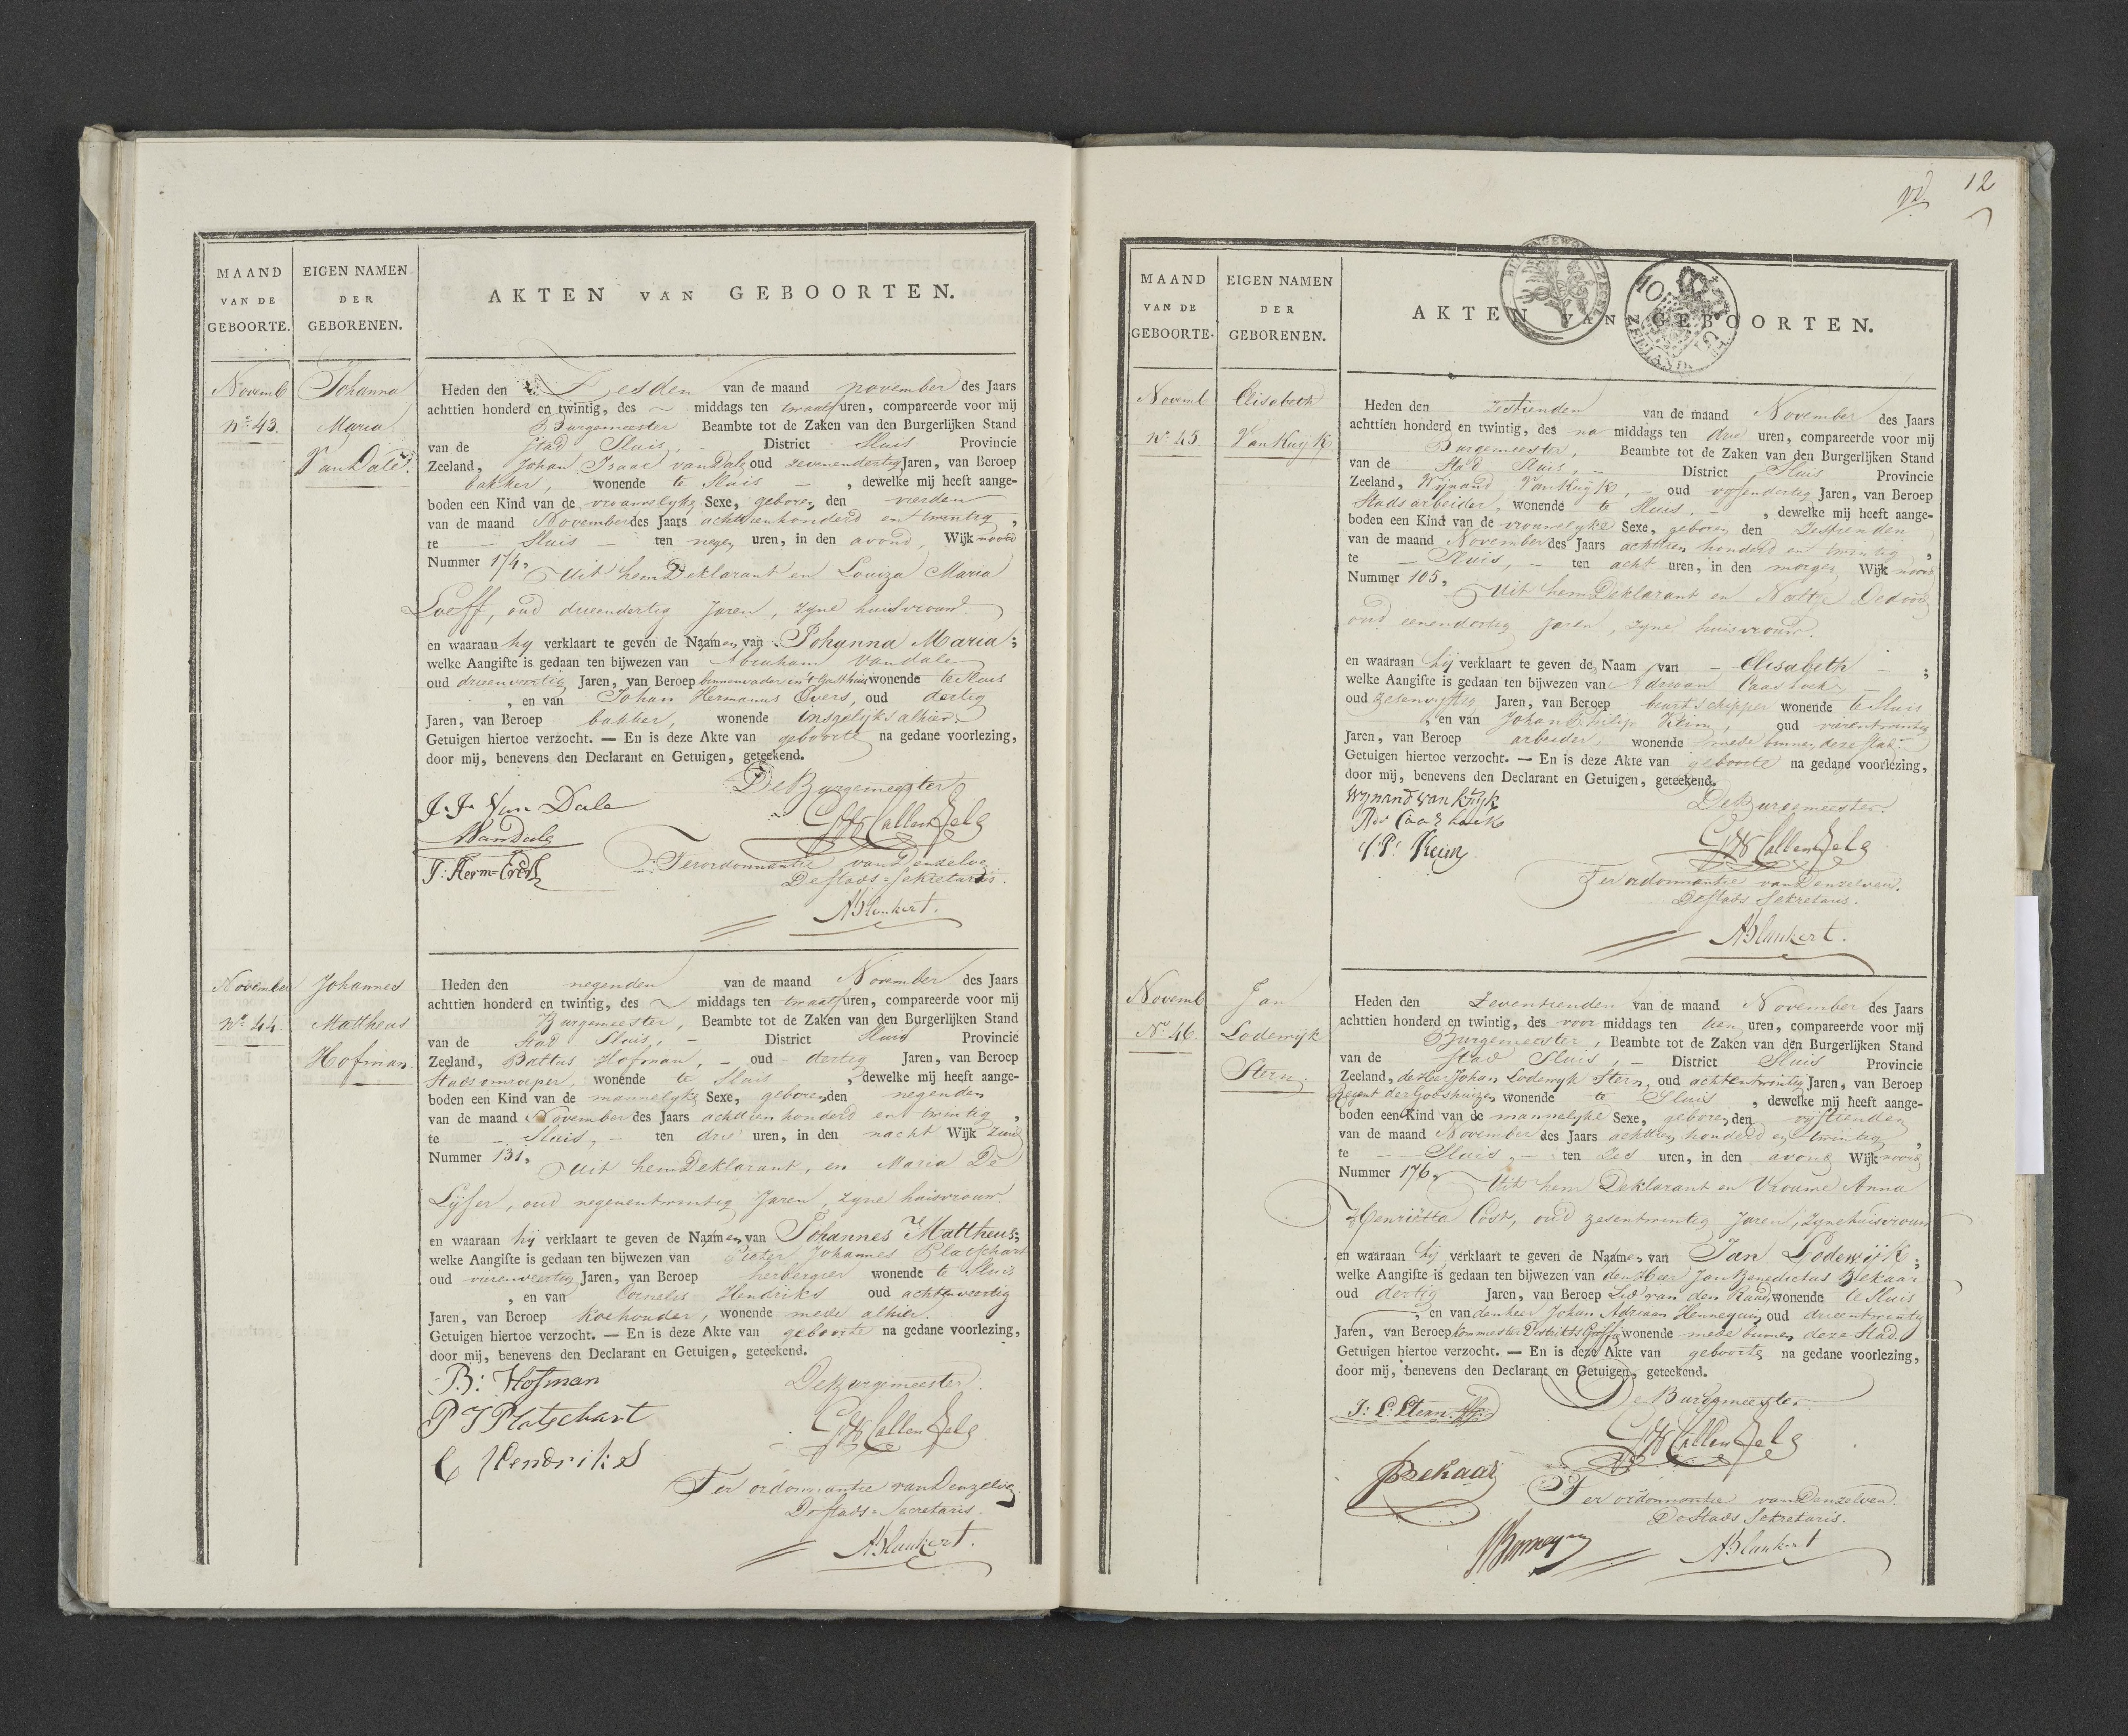 MAAND
VAN DE
GEBOORTE.
EIGEN NAMEN
DER
GEBORENEN.
AKTEN VAN GEBOORTEN.
Novemb
No. 43.
Johanna
Maria
Van Dale.
Heden den Zesden van de maand november des Jaars
achttien honderd en twintig, des ~ middags ten twaalf uren, compareerde voor mij
Burgemeester Beambte tot de Zaken van den Burgerlijken Stand
van de Stad Sluis, - District Sluis Provincie
Zeeland, Johan Isaac van Dale oud zevenendertig Jaren, van Beroep
bakker, wonende te Sluis - , dewelke mij heeft aange-
boden een Kind van de vrouwelyke Sexe, geboren den vierden
van de maand November des Jaars achttienhonderd en twintig,
te - Sluis - ten negen uren, in den avond, Wijk noord
Nummer 174, Uit hem Deklarant en Louiza Maria
Loeff, oud drieendertig Jaren, zyne huisvrouw.
en waaraan hy verklaart te geven de Naamen van Johanna Maria;
welke Aangifte is gedaan ten bijwezen van Abraham Vandale
oud drieenveertig Jaren, van Beroep binnenvader in't Gasthuis wonende te Sluis
, en van Johan Hermanus Evers, oud dertig
Jaren, van Beroep bakker, wonende insgelijks alhier.
Getuigen hiertoe verzocht. — En is deze Akte van geboorte na gedane voorlezing,
door mij, benevens den Declarant en Getuigen, geteekend.
De Burgemeester
J. J. Van Dale
AVanDale
J: Herm= Evers
Ter ordonnantie van Denzelve
De Stads=Sekretaris.
A Blankert.
November
No. 44.
Johannes
Mattheus
Hofman.
Heden den negenden van de maand November des Jaars
achttien honderd en twintig, des ~ middags ten twaalf uren, compareerde voor mij
Burgemeester, Beambte tot de Zaken van den Burgerlijken Stand
van de Stad Sluis, - District Sluis Provincie
Zeeland, Battus Hofman, - oud dertig Jaren, van Beroep
Stads omroeper, wonende te Sluis , dewelke mij heeft aange-
boden een Kind van de mannelyke Sexe, geboren den negenden
van de maand November des Jaars achttien honderd en twintig,
te - Sluis, - ten drie uren, in den nacht Wijk Zuid
Nummer 131, Uit hem Deklarant, en Maria De
Lijser, oud negenentwintig Jaren, zyne huisvrouw.
en waaraan hij verklaart te geven de Naamen van Johannes Mattheus;
welke Aangifte is gedaan ten bijwezen van Pieter Johannes Platschart
oud vierenveertig Jaren, van Beroep herbergier wonende te Sluis
, en van Cornelis Hendriks oud achtenveertig
Jaren, van Beroep Koehouder, wonende mede alhier.
Getuigen hiertoe verzocht. — En is deze Akte van geboorte na gedane voorlezing,
door mij, benevens den Declarant en Getuigen, geteekend.
B: Hofman
De Burgemeester.
P J Platschart
C Hendriks
Ter ordonnantie van Denzelve
De Stads=Secretaris.
A Blankert.
12
MAAND
VAN DE
GEBOORTE.
EIGEN NAMEN
DER
GEBORENEN.
AKTEN VAN GEBOORTEN.
ZEELAND.
Novemb
No. 45.
Elisabeth
Van Kuyk
Heden den zestienden van de maand November des Jaars
achttien honderd en twintig, des na middags ten drie uren, compareerde voor mij
Burgemeester, Beambte tot de Zaken van den Burgerlijken Stand
van de Stad Sluis, - District Sluis Provincie
Zeeland, Wijnand Van Kuyk, - oud vyfendertig Jaren, van Beroep
Stads arbeider, wonende te Sluis. - , dewelke mij heeft aange-
boden een Kind van de vrouwelyke Sexe, geboren den Zestienden
van de maand November des Jaars achttien honderd en twintig,
te - Sluis, - ten acht uren, in den morgen Wijk noord
Nummer 105, Uit hem Deklarant en
oud eenendertig Jaren, zyne huisvrouw.
en waaraan hij verklaart te geven de Naam van - Elisabeth - ;
welke Aangifte is gedaan ten bijwezen van Adriaan
oud zesenvyftig Jaren, van Beroep beurtschipper wonende te Sluis
, en van Johan Philip Keim, oud vierentwintig
Jaren, van Beroep arbeider, wonende mede binnen deze Stad.
Getuigen hiertoe verzocht. — En is deze Akte van geboorte na gedane voorlezing,
door mij, benevens den Declarant en Getuigen, geteekend.
Wynand van Kuyk
De Burgemeester.
J: P: Keim
Ter ordonnantie van Denzelven.
De Stads Sekretaris.
A Blankert.
Novemb
No. 46.
Jan
Lodewijk
Stern.
Heden den Zeventienden van de maand November des Jaars
achttien honderd en twintig, des voor middags ten tien uren, compareerde voor mij
Burgemeester, Beambte tot de Zaken van den Burgerlijken Stand
van de Stad Sluis, - District Sluis Provincie
Zeeland, de Heer Johan Lodewyk Stern, oud achtentwintig Jaren, van Beroep
Regent der Godshuizen wonende te Sluis , dewelke mij heeft aange-
boden een Kind van de mannelyke Sexe, geboren den vijftienden
van de maand November des Jaars achttien honderd en twintig,
te - Sluis, - ten Zes uren, in den avond Wijk noord
Nummer 176, Uit hem Deklarant en Vrouwe Anna
Henriëtta Cost, oud zesentwintig Jaren, zyne huisvrouw
en waaraan hij verklaart te geven de Naamen van Jan Lodewijk;
welke Aangifte is gedaan ten bijwezen van den Heer Jan Benedictus Bekaar
oud dertig Jaren, van Beroep Lid van den Raad, wonende te Sluis
, en van den heer Johan Adriaan Hennequin, oud drieentwintig
Jaren, van Beroep wonende mede binnen deze Stad.
Getuigen hiertoe verzocht. — En is deze Akte van geboorte na gedane voorlezing,
door mij, benevens den Declarant en Getuigen, geteekend.
De Burgemeester.
J: L: Stern
Bekaar
Ter ordonnantie van Denzelven.
De Stads Sekretaris.
A Blankert